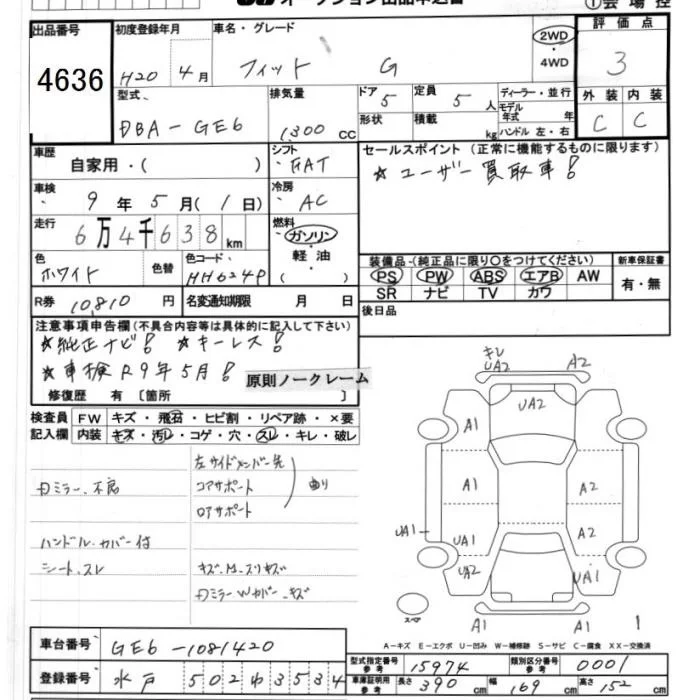 出品番号 初度登録年月 車名・グレード 2WD 評価点
4636 H20 年 4月 フィット G ・4WD 3
型式 排気量 ドア 5 定員 5 人 ディーラー・並行 外装 内装
DBA-GE6 1300 cc 形状 積載 kg モデル年式 年 ハンドル 左・右 C C
車歴 シフト セールスポイント (正常に機能するものに限ります)
自家用・( ) FAT ☆ユーザー買取車!
車検 冷房
9年 5月 (1日) AC
走行 燃料
6万4千638 km ガソリン・軽油・( )
色 色替 色コード 装備品-(純正品に限り○をつけてください) 新車保証書
ホワイト NH624P PS PW ABS エアB AW 有・無
SR ナビ TV カワ
R券 10,810 円 名変通知期限 月 日 後日品
注意事項申告欄 (不具合内容等は具体的に記入して下さい)
☆純正ナビ! ☆キーレス!
☆車検R9年5月! 原則ノークレーム
修復歴 有 〔箇所 〕
検査員 FW キズ・飛石・ヒビ割・リペア跡・×要
記入欄 内装 キズ・汚レ・コゲ・穴・スレ・キレ・破レ
左サイドメンバー先
コアサポート 曲り
ロアサポート
ミラー不良
ハンドルカバー付
シートスレ
キズ
キレ UA2 A2
UA2
A1
A1 A2
UA1 UA1 A2
UA2 UA1
スペア A1 A1
A-キズ E-エクボ U-凹み W-補修跡 S-サビ C-腐食 XX-交換済
車台番号 GE6-1081420
登録番号 水戸 502 ゆ 3534
型式指定番号 参考 15974 類別区分番号 参考 0001
車庫証明用 参考 長さ 390 cm 幅 169 cm 高さ 152 cm